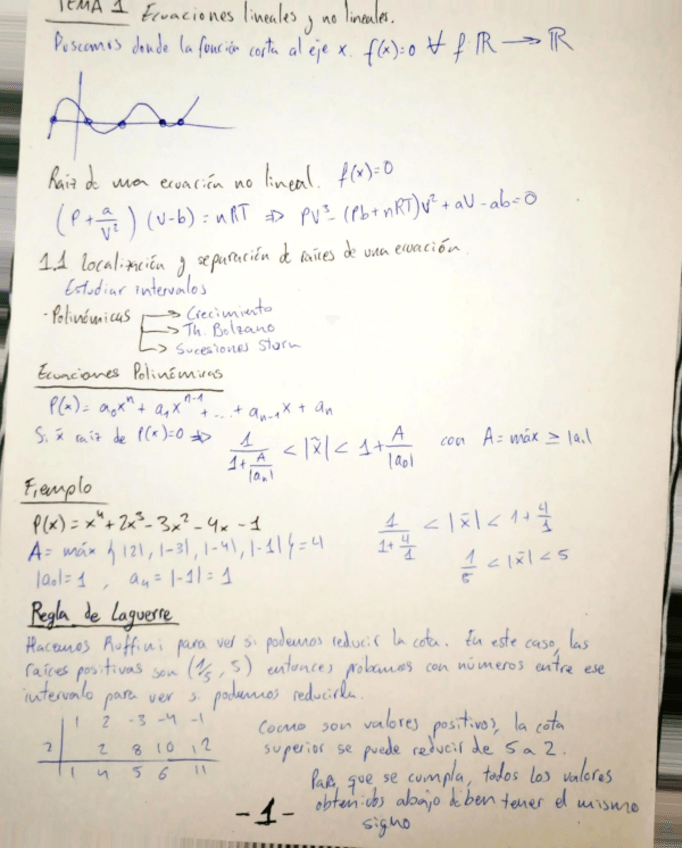 TEMA 1 Ecuaciones lineales y no lineales.
Buscamos donde la función corta al eje x. f(x)=0 ∀ f: ℝ → ℝ
Raíz de una ecuación no lineal. f(x)=0
(P + a/V²) (V-b) = nRT ⇒ PV³ - (Pb+nRT)V² + aV - ab = 0
1.1 Localización y separación de raíces de una ecuación.
Estudiar intervalos
- Polinómicas → Crecimiento
→ Th. Bolzano
→ Sucesiones Sturm
Ecuaciones Polinómicas
P(x) = a₀xⁿ + a₁xⁿ⁻¹ + ... + aₙ₋₁x + aₙ
Si x̄ raíz de P(x)=0 ⇒ 1/(1+A/|aₙ|) < |x̄| < 1 + A/|a₀| con A = máx ≥ |aᵢ|
Ejemplo
P(x) = x⁴ + 2x³ - 3x² - 4x - 1 1/(1+4/1) < |x̄| < 1 + 4/1
A = máx {|2|, |-3|, |-4|, |-1|} = 4 1/5 < |x̄| < 5
|a₀| = 1 , a₄ = |-1| = 1
Regla de Laguerre
Hacemos Ruffini para ver si podemos reducir la cota. En este caso, las
raíces positivas son (1/5, 5) entonces probamos con números entre ese
intervalo para ver si podemos reducirla.
1 2 -3 -4 -1
2 2 8 10 12
1 4 5 6 11
Como son valores positivos, la cota
superior se puede reducir de 5 a 2.
Para que se cumpla, todos los valores
obtenidos abajo deben tener el mismo
signo
-1-